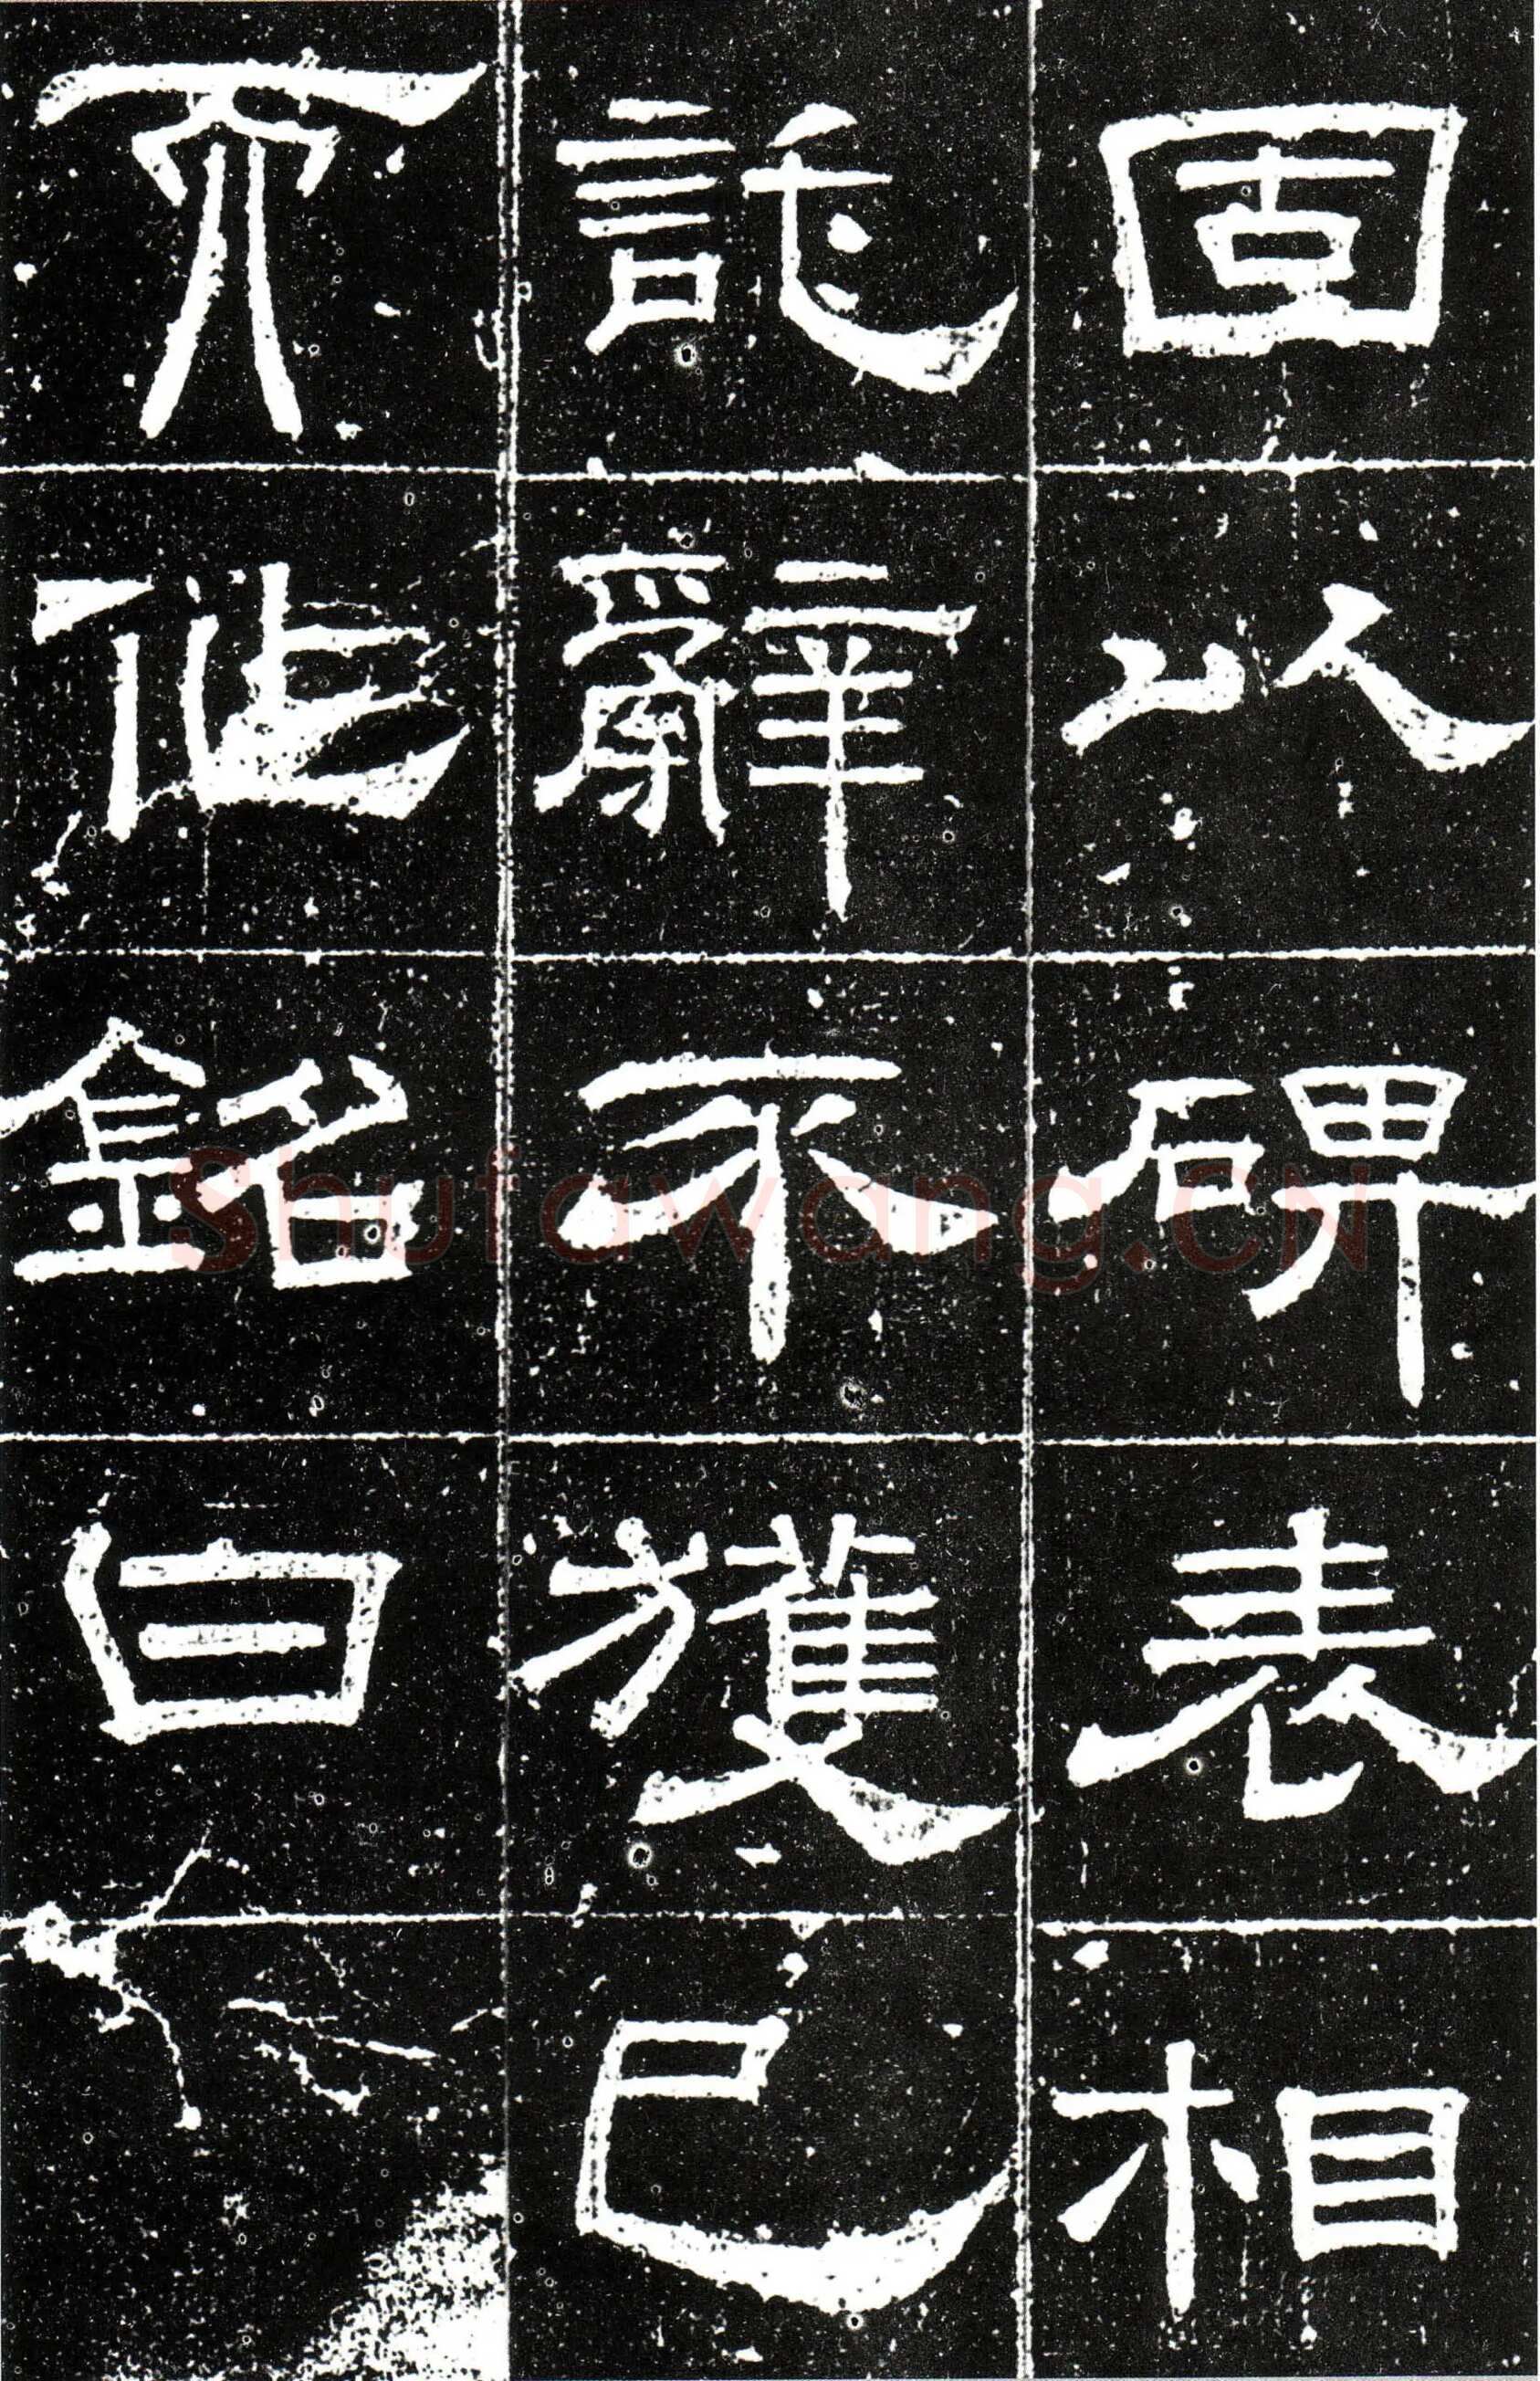 固以碑表相
託辭不獲已
而作銘曰
Shufawang.CN